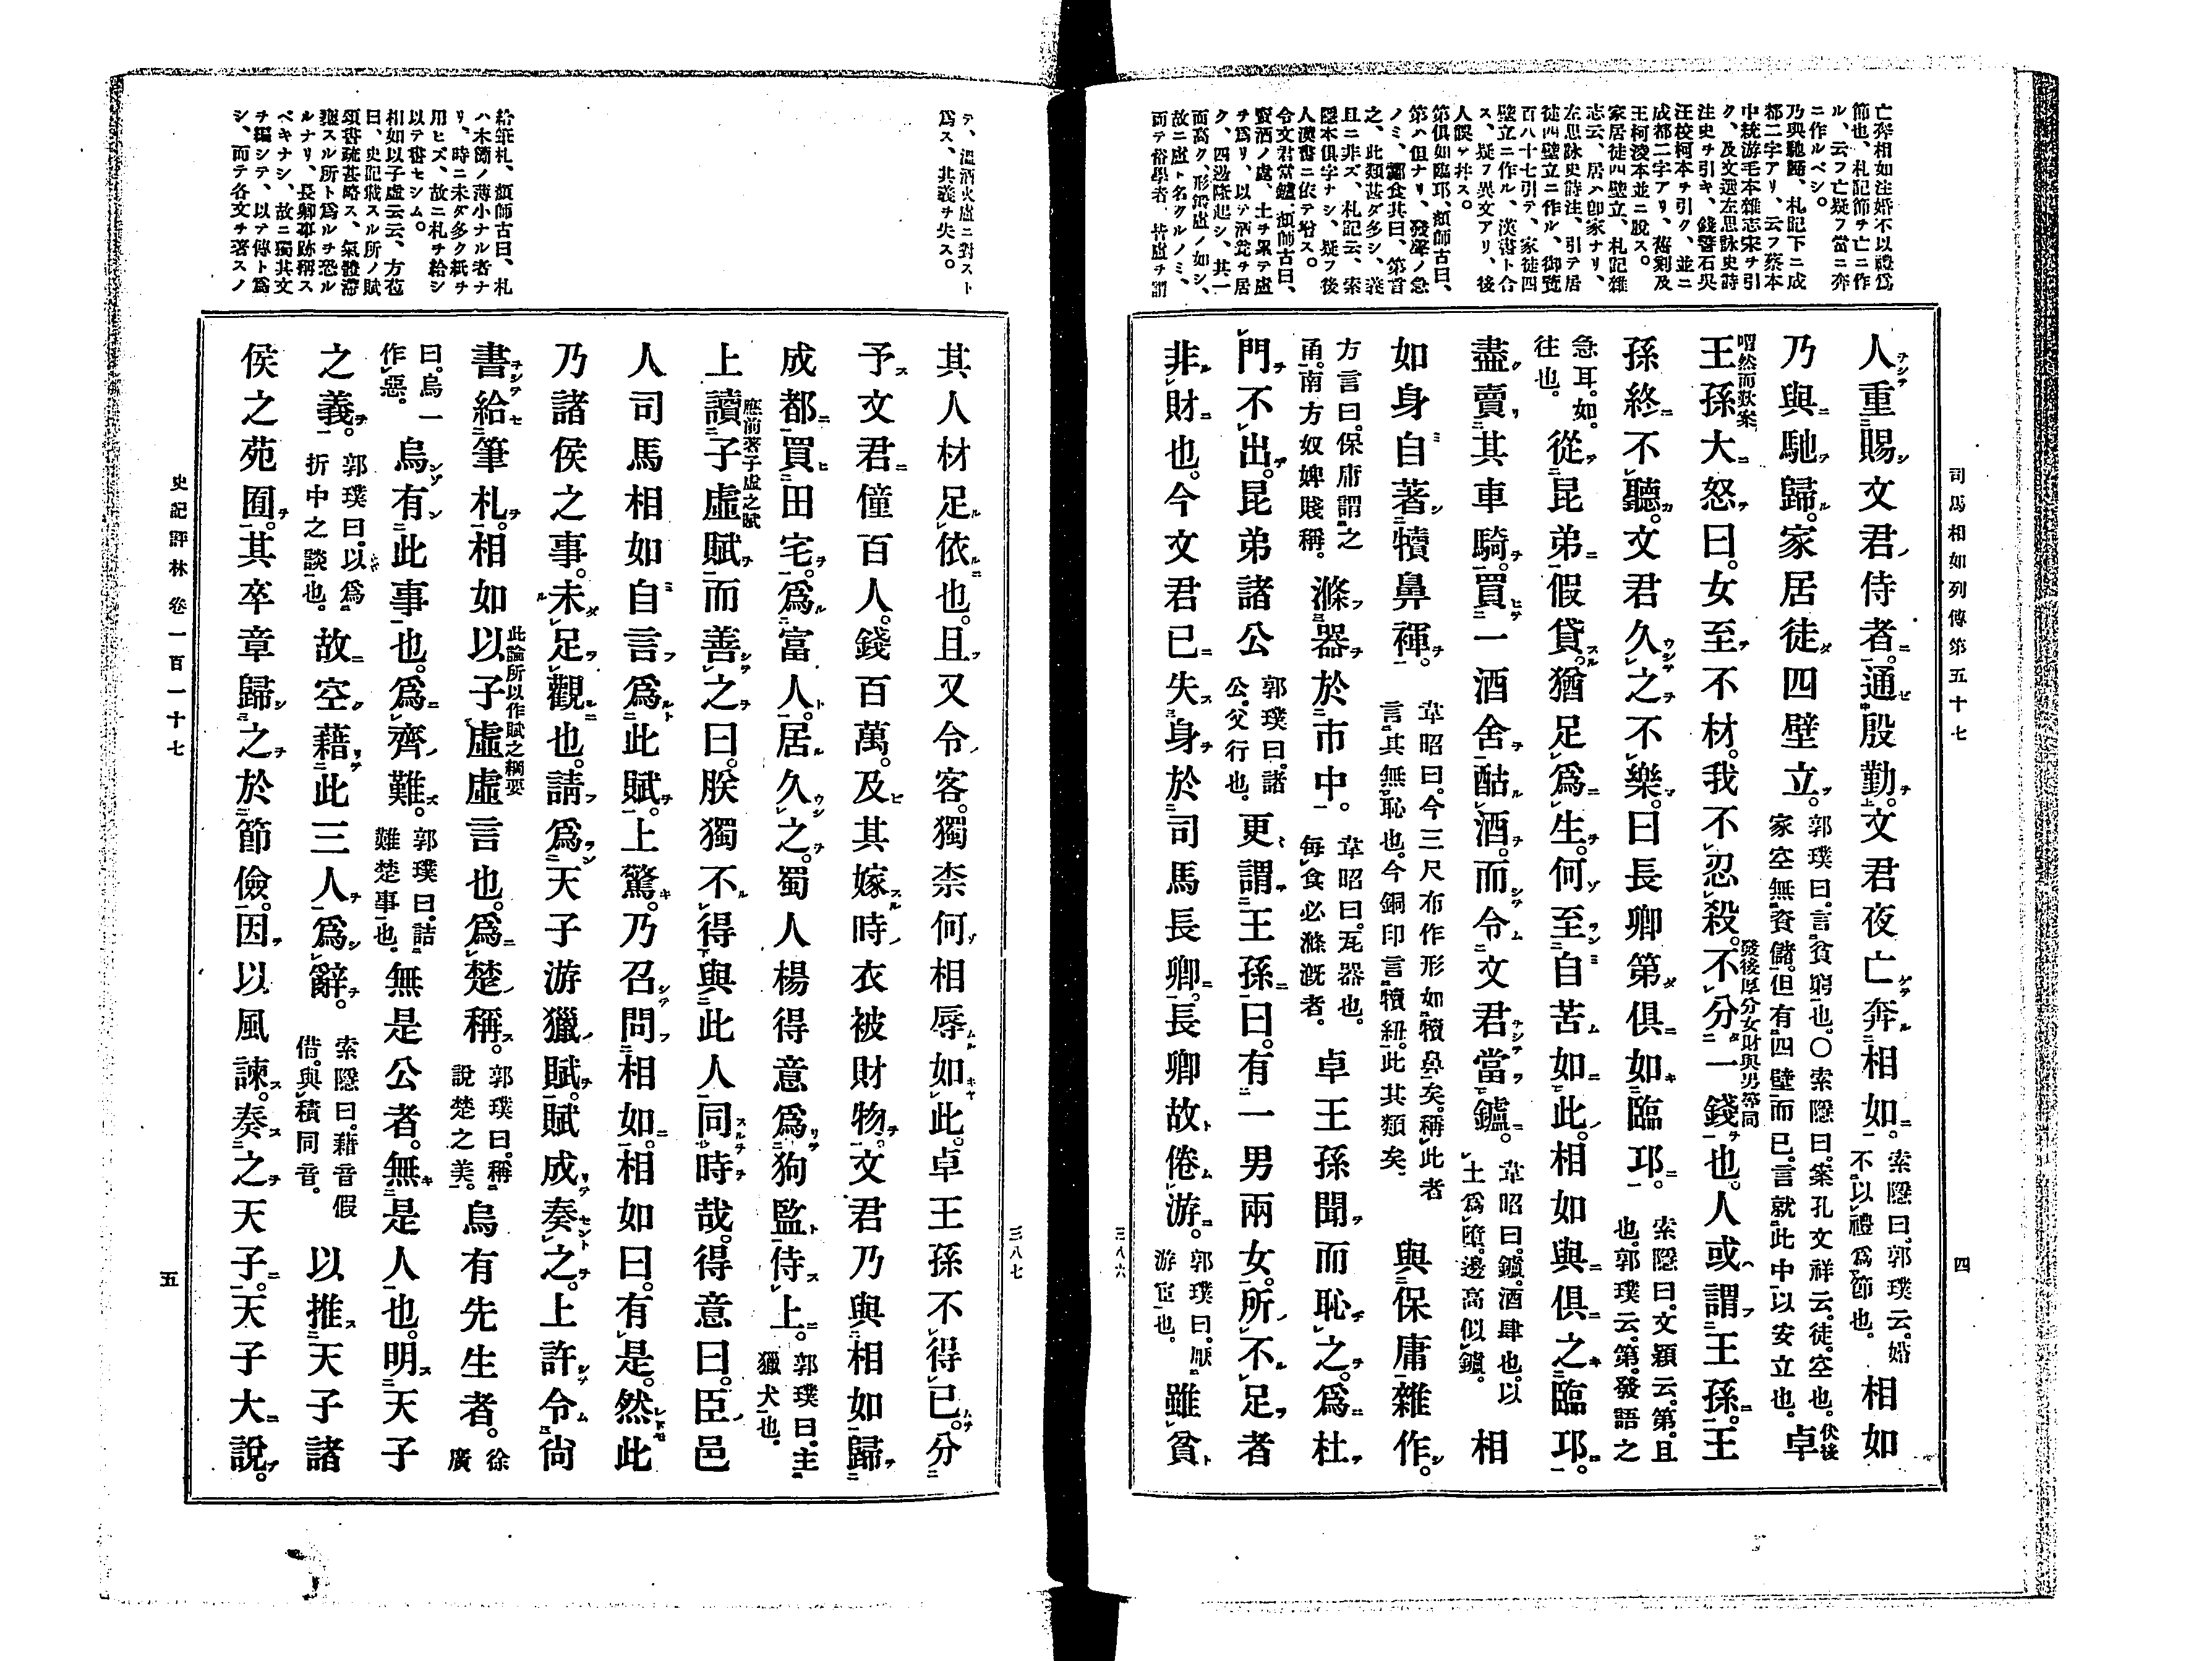 司馬相如列傳第五十七
四
三八六
亡奔相如注婚不以禮爲
節也、札記節チ亡ニ作
ル、云フ亡疑フ當ニ奔
ニ作ルベシ。
乃與馳歸、札記下ニ成
都二字アリ、云フ蔡本
中統游毛本雜志宋チ引
ク、及文選左思詠史詩
注史チ引キ、錢警石吳
汪校柯本チ引ク、並ニ
成都二字アリ、舊刻及
王柯淩本並ニ脫ス。
家居徒四壁立、札記雜
志云、居ハ卽家ナリ、
左思詠史詩注、引テ居
徒四壁立ニ作ル、御覽
百八十七引テ、家徒四
壁立ニ作ル、漢書ト合
ス、疑フ異文アリ、後
人誤テ幷ス。
第俱如臨邛、顏師古曰、
第ハ但ナリ、發聲ノ急
ノミ、酈食其曰、第言
之、此類甚ダ多シ、義
且ニ非ズ、札記云、索
隱本俱字ナシ、疑フ後
人漢書ニ依テ增ス。
令文君當鑪、顏師古曰、
賣酒ノ處、土チ累テ盧
チ爲リ、以テ酒瓮チ居
ク、四邊隆起シ、其一
面高ク、形鍛盧ノ如シ、
故ニ盧ト名クルノミ、
而テ俗學者、皆盧チ謂
人重賜文君侍者。通殷勤。文君夜亡奔相如。索隱曰。郭璞云。婚不以禮爲節也。相如
乃與馳歸。家居徒四壁立。郭璞曰。言貧窮也。〇索隱曰。案孔文祥云。徒。空也。家空無資儲。但有四壁而已。言就此中以安立也。伏後卓
王孫大怒曰。女至不材。我不忍殺。不分一錢也。人或謂王孫。王
孫終不聽。文君久之不樂。曰長卿第俱如臨邛。索隱曰。文穎云。第。且也。郭璞云。第。發語之
急耳。如。往也。從昆弟假貸。猶足爲生。何至自苦如此。相如與俱之臨邛。
盡賣其車騎。買一酒舍酤酒。而令文君當鑪。韋昭曰。鑪。酒肆也。以土爲墮。邊高似鑪。相
如身自著犢鼻褌。韋昭曰。今三尺布作形如犢鼻矣。稱此者言其無恥也。今銅印言犢紐。此其類矣。與保庸雜作。
方言曰。保庸謂之甬。南方奴婢賤稱。滌器於市中。韋昭曰。瓦器也。每食必滌漑者。卓王孫聞而恥之。爲杜
門不出。昆弟諸公郭璞曰。諸公。父行也。更謂王孫曰。有一男兩女。所不足者
非財也。今文君已失身於司馬長卿。長卿故倦游。郭璞曰。厭游宦也。雖貧
テ、溫酒火盧ニ對スト
爲ス、其義チ失ス。
給筆札、顏師古曰、札
ハ木簡ノ薄小ナル者ナ
リ、時ニ未ダ多ク紙チ
用ヒズ、故ニ札チ給シ
以テ書セシム。
相如以子虛云云、方苞
曰、史記載スル所ノ賦
頌書疏甚略ス、氣體滯
壅スル所ト爲ルチ恐ル
ルナリ、長卿事跡稱ス
ベキナシ、故ニ獨其文
チ編シテ、以テ傳ト爲
シ、而テ各文チ著スノ
其人材足依也。且又令客。獨柰何相辱如此。卓王孫不得已。分
予文君僮百人。錢百萬。及其嫁時衣被財物。文君乃與相如歸
成都。買田宅。爲富人。居久之。蜀人楊得意爲狗監侍上。郭璞曰。主獵犬也。
應前著子虛之賦
上讀子虛賦而善之曰。朕獨不得與此人同時哉。得意曰。臣邑
人司馬相如自言爲此賦。上驚。乃召問相如。相如曰。有是。然此
乃諸侯之事。未足觀也。請爲天子游獵賦。賦成奏之。上許令尙
此論所以作賦之綱要
書給筆札。相如以子虛虛言也。爲楚稱。郭璞曰。稱說楚之美。烏有先生者。徐廣
曰。烏一作惡。烏有此事也。爲齊難。郭璞曰。詰難楚事也。無是公者。無是人也。明天子
之義。郭璞曰。以爲折中之談也。故空藉此三人爲辭。索隱曰。藉音假借。與積同音。以推天子諸
侯之苑囿。其卒章歸之於節儉。因以風諫。奏之天子。天子大說。
史記評林 卷一百一十七
三八七
五